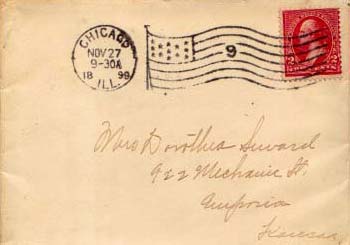 CHICAGO
NOV 27
9-30A
18 99
ILL.
9
2 2
Mrs Dorothea Seward
922 Mechanic St.
Emporia
Kansas